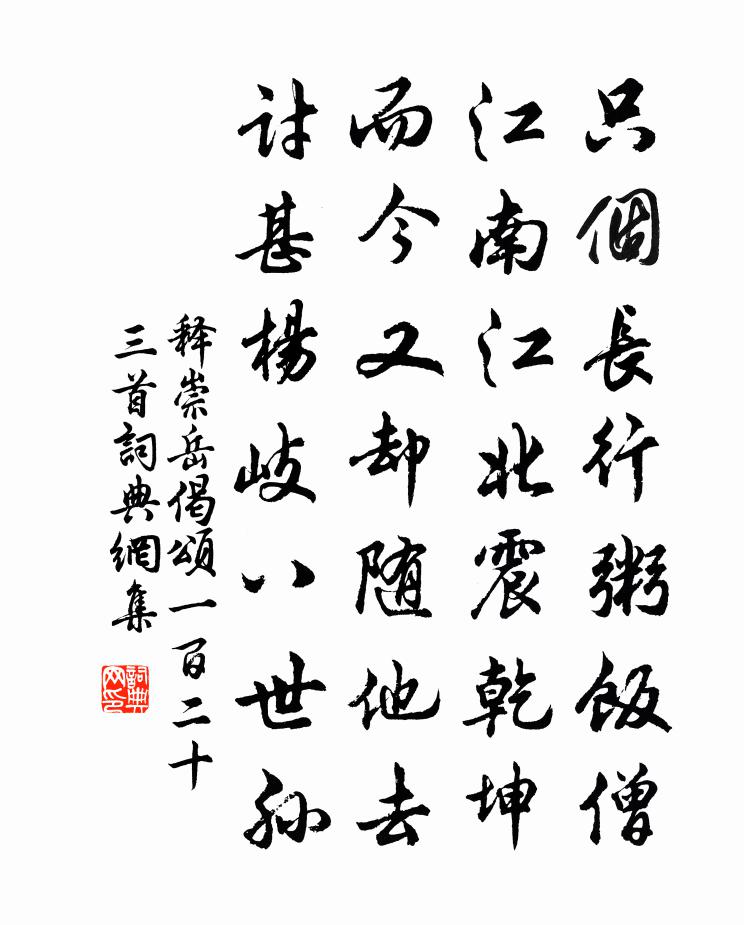 只個長行粥飯僧
江南江北震乾坤
而今又却随他去
討甚楊岐八世孫
释崇岳偈頌一百二十
三首詞典網集
詞典网印